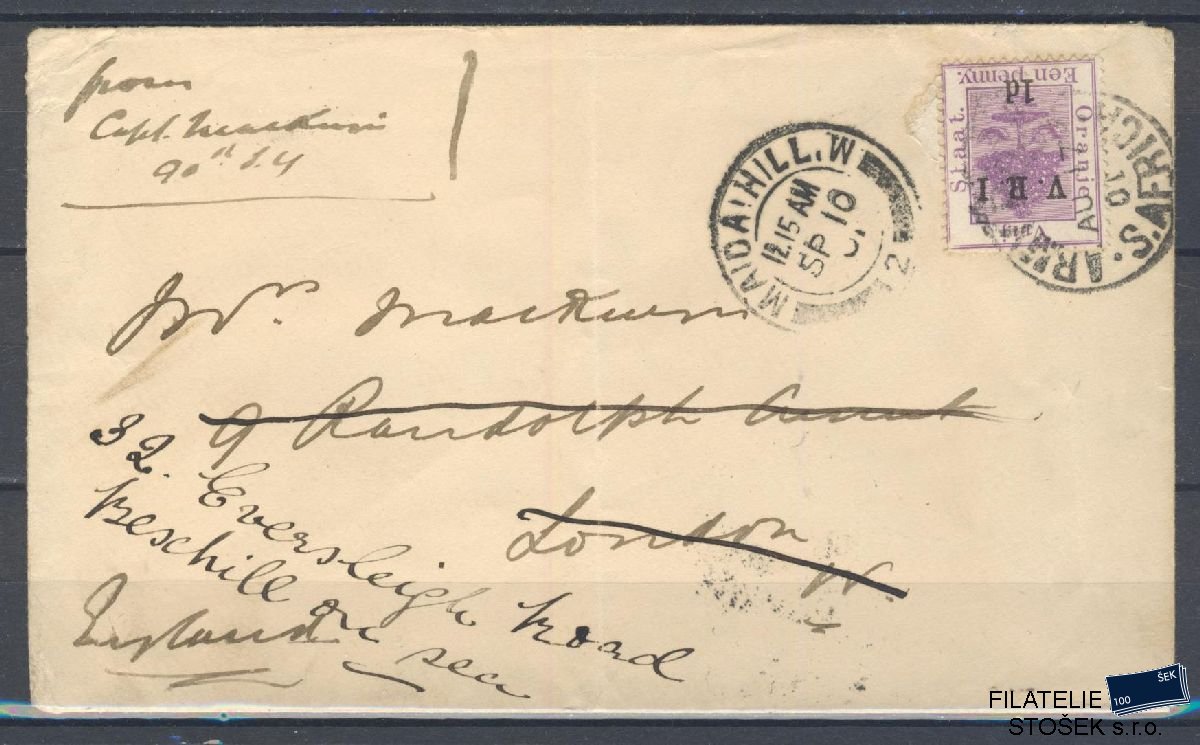 from
Capt. Mackun
90th L.I
Een penny.
1d
Staat.
Oranje
V. R. I
Vrij
ARMY S. AFRICA
AU
01
MAIDA HILL. W
12.15 AM
SP 10
01
12
Mrs. Mackun
9 Randolph
London
W.
32. Eversleigh Road
Bexhill on sea
England
FILATELIE
STOŠEK s.r.o.
100
ŠEK